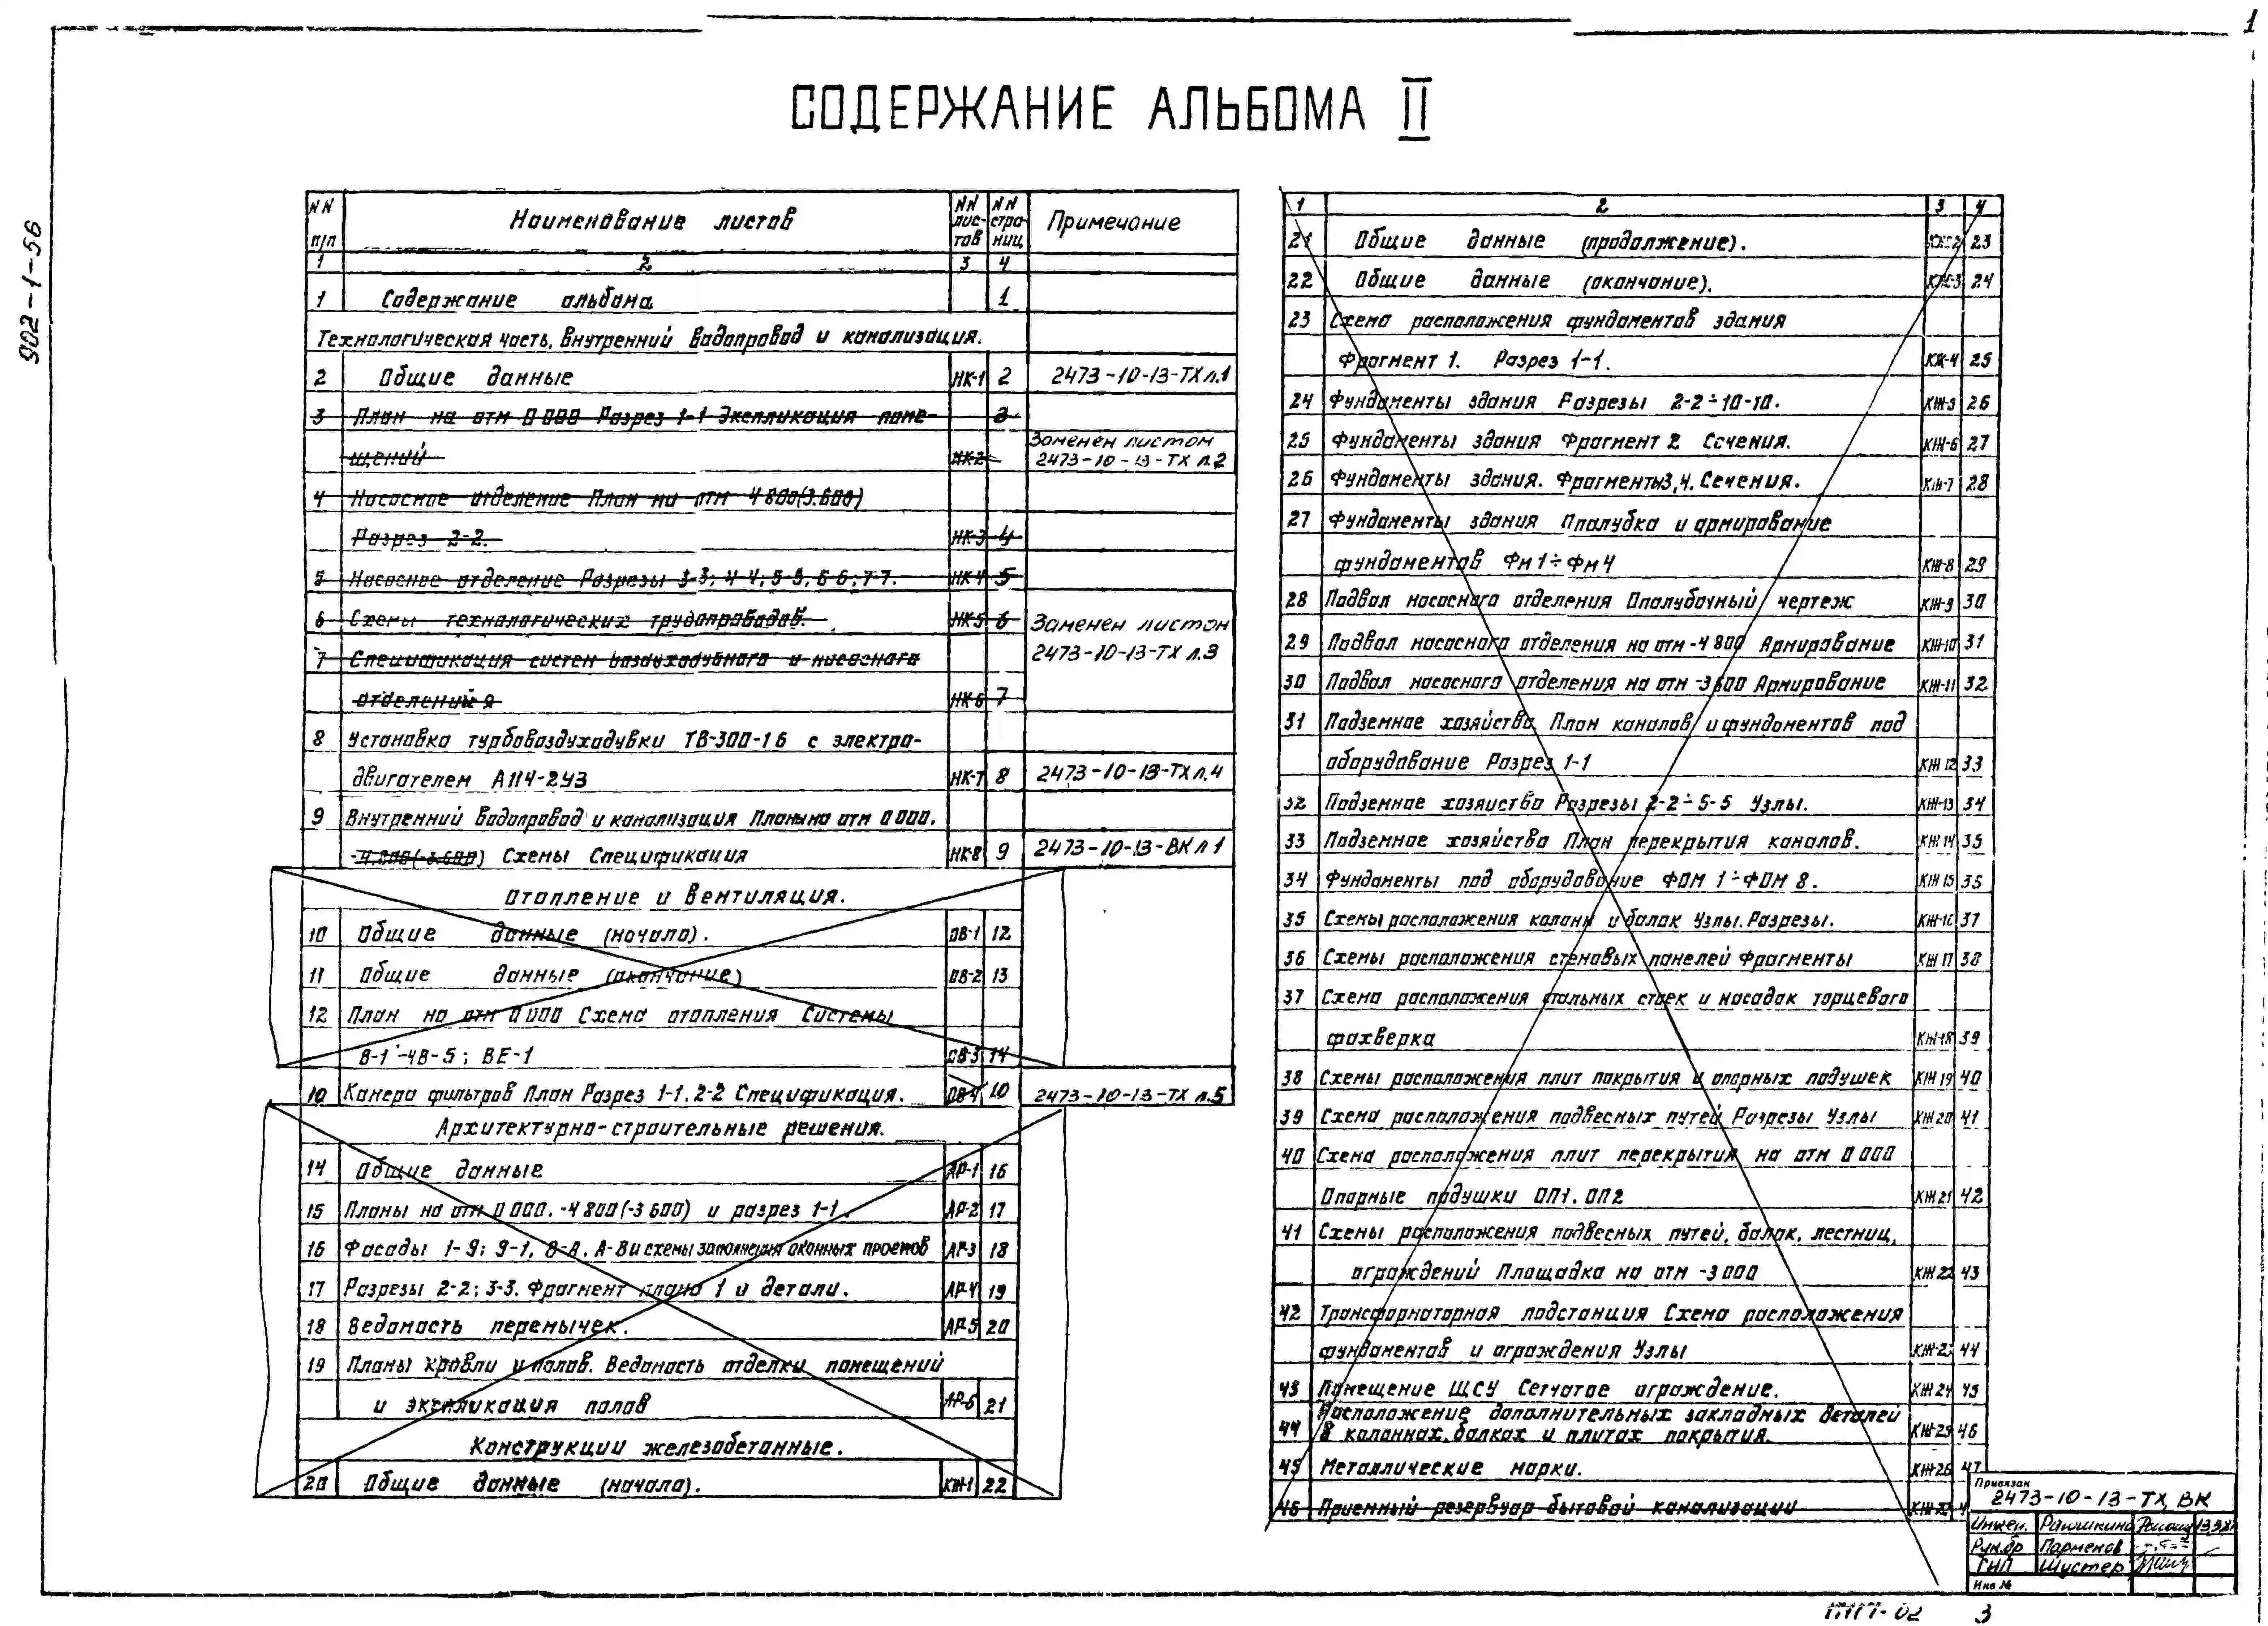 1
902-1-56
СОДЕРЖАНИЕ АЛЬБОМА II
NN п/п Наименование листов NN лис-тов NN стра-ниц Примечание
1 2 3 4
1 Содержание альбома 1
Технологическая часть. Внутренний водопровод и канализация.
2 Общие данные НК-1 2 2473-10-13-ТХ л.1
3 План на отм 0 000 Разрез 1-1 Экспликация поме- 3
щений НК-2 Заменен листом 2473-10-13-ТХ л.2
4 Насосное отделение План на отм 4 800(3.600)
Разрез 2-2. НК-3 4
5 Насосное отделение Разрезы 3-3; 4-4; 5-5; 6-6; 7-7. НК-4 5
6 Схемы технологических трубопроводов. НК-5 6 Заменен листом
7 Спецификация систем воздуходувного и насосного 2473-10-13-ТХ л.3
отделений НК-6 7
8 Установка турбовоздуходувки ТВ-300-1 6 с электро-
двигателем А114-2У3 НК-7 8 2473-10-13-ТХ л.4
9 Внутренний водопровод и канализация Планы на отм 0 000.
-4.800(-3.600) Схемы Спецификация НК-8 9 2473-10-13-ВК л 1
Отопление и вентиляция.
10 Общие данные (начало). ОВ-1 12
11 Общие данные (окончание) ОВ-2 13
12 План на отм 0 000 Схема отопления Системы
В-1÷4В-5; ВЕ-1 ОВ-3 14
10 Камера фильтров План Разрез 1-1, 2-2 Спецификация. ОВ-4 10 2473-10-13-ТХ л.5
Архитектурно-строительные решения.
14 Общие данные АР-1 16
15 Планы на отм 0 000. -4 800(-3 600) и разрез 1-1. АР-2 17
16 Фасады 1-9; 9-1, В-А, А-В и схемы заполнения оконных проемов АР-3 18
17 Разрезы 2-2; 3-3. Фрагмент плана 1 и детали. АР-4 19
18 Ведомость перемычек. АР-5 20
19 Планы кровли и полов. Ведомость отделки помещений
и экспликация полов АР-6 21
Конструкции железобетонные.
20 Общие данные (начало). КЖ-1 22
1 2 3 4
21 Общие данные (продолжение). КЖ-2 23
22 Общие данные (окончание). КЖ-3 24
23 Схема расположения фундаментов здания
Фрагмент 1. Разрез 1-1. КЖ-4 25
24 Фундаменты здания Разрезы 2-2÷10-10. КЖ-5 26
25 Фундаменты здания Фрагмент 2 Сечения. КЖ-6 27
26 Фундаменты здания. Фрагменты 3,4. Сечения. КЖ-7 28
27 Фундаменты здания Опалубка и армирование
фундаментов Фм1÷Фм4 КЖ-8 29
28 Подвал насосного отделения Опалубочный чертеж КЖ-9 30
29 Подвал насосного отделения на отм -4 800 Армирование КЖ-10 31
30 Подвал насосного отделения на отм -3 600 Армирование КЖ-11 32
31 Подземное хозяйство План каналов и фундаментов под
оборудование Разрез 1-1 КЖ 12 33
32 Подземное хозяйство Разрезы 2-2÷5-5 Узлы. КЖ-13 34
33 Подземное хозяйство План перекрытия каналов. КЖ 14 35
34 Фундаменты под оборудование ФОМ 1÷ФОМ 8. КЖ 15 35
35 Схемы расположения колонн и балок Узлы. Разрезы. КЖ-16 37
36 Схемы расположения стеновых панелей Фрагменты КЖ 17 38
37 Схема расположения стальных стоек и насадок торцевого
фахверка КЖ-18 39
38 Схемы расположения плит покрытия и опорных подушек КЖ 19 40
39 Схема расположения подвесных путей Разрезы Узлы КЖ 20 41
40 Схема расположения плит перекрытия на отм 0 000
Опорные подушки ОП1, ОП2 КЖ 21 42
41 Схемы расположения подвесных путей, балок, лестниц,
ограждений Площадка на отм -3 000 КЖ 22 43
42 Трансформаторная подстанция Схема расположения
фундаментов и ограждения Узлы КЖ-23 44
43 Помещение ЩСУ Сетчатое ограждение. КЖ 24 45
44 Расположение дополнительных закладных деталей
в колоннах, балках и плитах покрытия. КЖ-25 46
45 Металлические марки. КЖ-26 47
46 Приемный резервуар бытовой канализации
Привязан
2473-10-13-ТХ, ВК
Инжен. Рамшкина
Рук.бр Парменов
ГИП Шустер
Инв №
17417-02 3